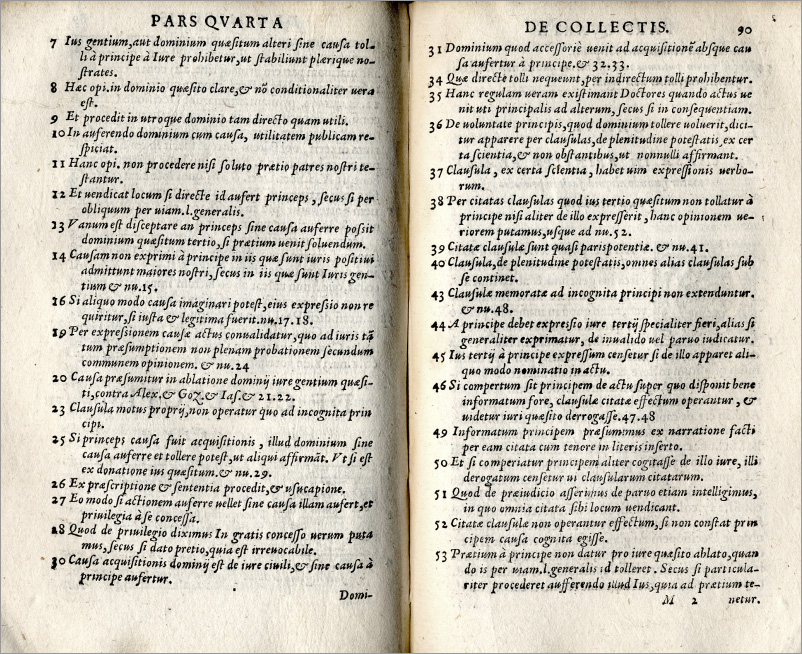 PARS QVARTA
7 Ius gentium, aut dominium quæsitum alteri sine causa tol-
li à principe à Iure prohibetur, ut stabiliunt plærique no-
strates.
8 Hæc opi. in dominio quæsito clare, & nō conditionaliter uera
est.
9 Et procedit in utroque dominio tam directo quam utili.
10 In auferendo dominium cum causa, utilitatem publicam re-
spiciat.
11 Hanc opi. non procedere nisi soluto prætio patres nostri te-
stantur.
12 Et uendicat locum si directe id aufert princeps, secus si per
obliquum per uiam.l.generalis.
13 Vanum est disceptare an princeps sine causa auferre possit
dominium quæsitum tertio, si prætium uenit soluendum.
14 Causam non exprimi à principe in iis quæ sunt iuris positiui
admittunt maiores nostri, secus in iis quæ sunt Iuris gen-
tium & nu.15.
16 Si aliquo modo causa imaginari potest, eius expressio non re
quiritur, si iusta & legitima fuerit.nu.17.18.
19 Per expressionem causæ actus conualidatur, quo ad iuris tā
tum præsumptionem non plenam probationem secundum
communem opinionem. & nu.24
20 Causa præsumitur in ablatione dominij iure gentium quæsi-
ti, contra Alex.& Goz.& Ias.& 21.22.
23 Clausula motus proprij, non operatur quo ad incognita prin
cipi.
25 Si princeps causa fuit acquisitionis, illud dominium sine
causa auferre et tollere potest, ut aliqui affirmāt. Vt si est
ex donatione ius quæsitum.& nu.29.
26 Ex præscriptione & sententia procedit, & usucapione.
27 Eo modo si actionem auferre uellet sine causa illam aufert, et
priuilegia à se concessa.
28 Quod de priuilegio diximus In gratis concesso uerum puta
mus, secus si dato pretio, quia est irreuocabile.
30 Causa acquisitionis dominij est de iure ciuili, & sine causa à
principe aufertur.
Domi-
DE COLLECTIS. 90
31 Dominium quod accessoriè uenit ad acquisitionē absque cau
sa aufertur à principe.& 32.33.
34 Quæ directe tolli nequeunt, per indirectum tolli prohibentur.
35 Hanc regulam ueram existimant Doctores quando actus ue
nit uti principalis ad alterum, secus si in consequentiam.
36 De uoluntate principis, quod dominium tollere uoluerit, dici-
tur apparere per clausulas, de plenitudine potestatis, ex cer
ta scientia, & non obstantibus, ut nonnulli affirmant.
37 Clausula, ex certa scientia, habet uim expressionis uerbo-
rum.
38 Per citatas clausulas quod ius tertio quæsitum non tollatur à
principe nisi aliter de illo expresserit, hanc opinionem ue-
riorem putamus, usque ad nu.52.
39 Citatæ clausulæ sunt quasi paris potentiæ. & nu.41.
40 Clausula, de plenitudine potestatis, omnes alias clausulas sub
se continet.
43 Clausulæ memoratæ ad incognita principi non extenduntur.
& nu.48.
44 A principe debet expressio iure tertij specialiter fieri, alias si
generaliter exprimatur, de inualido uel paruo iudicatur.
45 Ius tertij à principe expressum censetur si de illo apparet ali-
quo modo nominatio in actu.
46 Si compertum sit principem de actu super quo disponit bene
informatum fore, clausulæ citatæ effectum operantur, &
uidetur iuri quæsito derrogasse.47.48
49 Informatum principem præsumimus ex narratione facti
per eam citata cum tenore in literis inserto.
50 Et si comperiatur principem aliter cogitasse de illo iure, illi
derogatum censetur ui clausularum citatarum.
51 Quod de præiudicio asserimus de paruo etiam intelligimus,
in quo omnia citata sibi locum uendicant.
52 Citatæ clausulæ non operantur effectum, si non constat prin
cipem causa cognita egisse.
53 Prætium à principe non datur pro iure quæsito ablato, quan
do is per uiam.l.generalis id tolleret. Secus si particula-
riter procederet aufferendo illud Ius, quia ad prætium te-
M 2 netur.